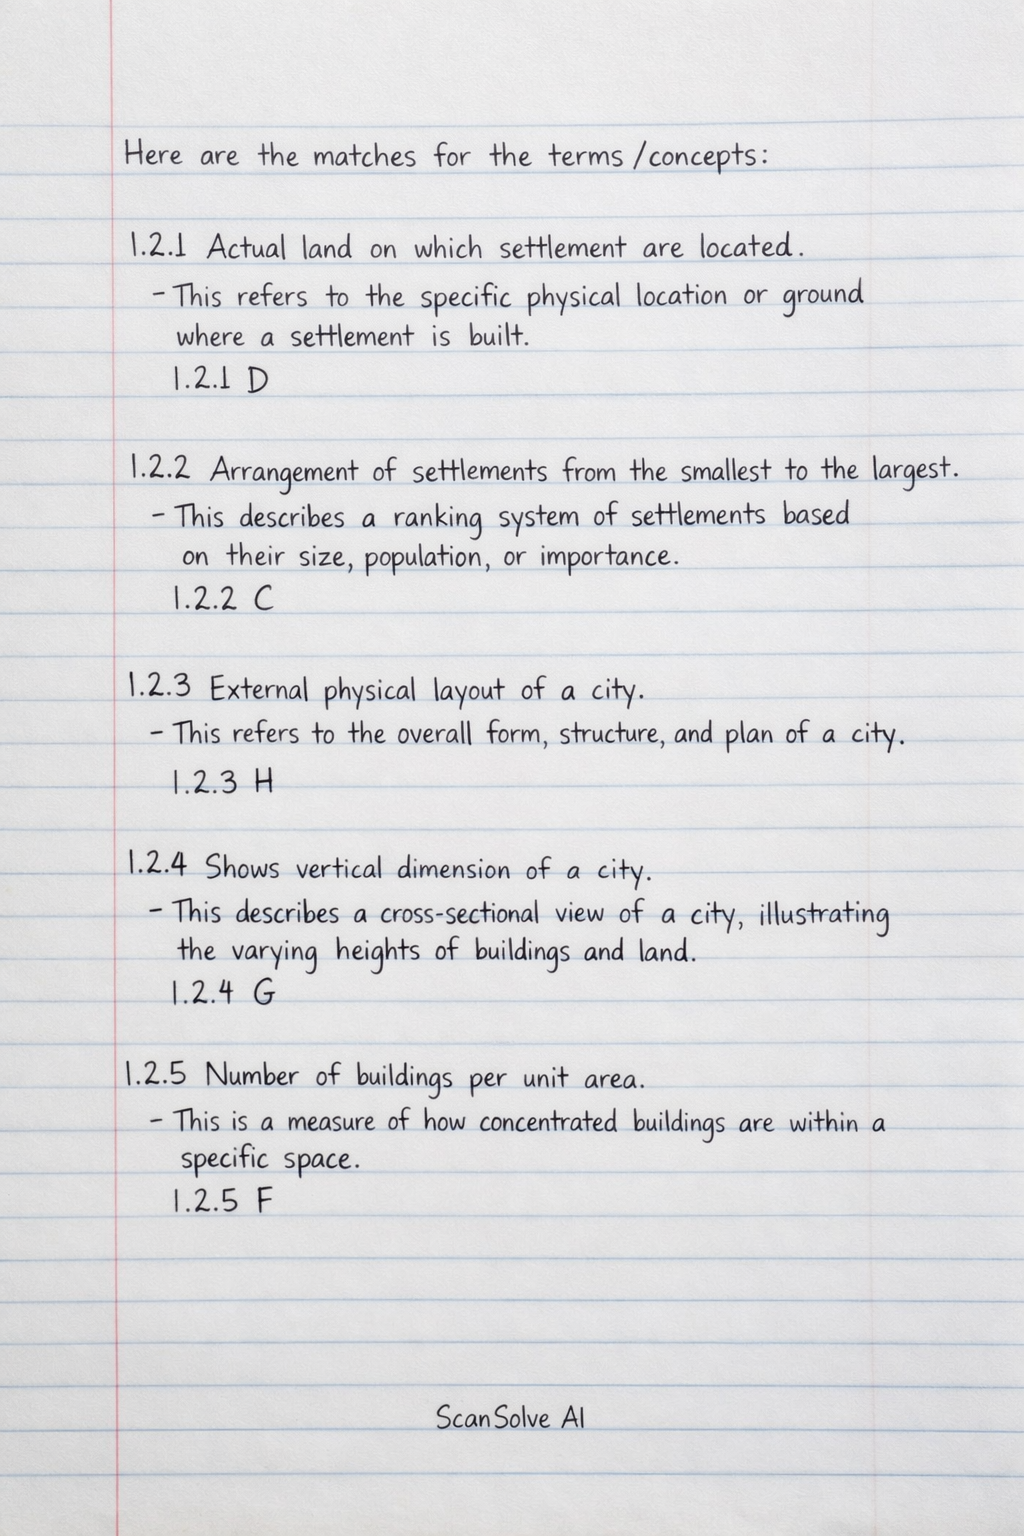 Here are the matches for the terms/concepts:
1.2.1 Actual land on which settlement are located.
- This refers to the specific physical location or ground
where a settlement is built.
1.2.1 D
1.2.2 Arrangement of settlements from the smallest to the largest.
- This describes a ranking system of settlements based
on their size, population, or importance.
1.2.2 C
1.2.3 External physical layout of a city.
- This refers to the overall form, structure, and plan of a city.
1.2.3 H
1.2.4 Shows vertical dimension of a city.
- This describes a cross-sectional view of a city, illustrating
the varying heights of buildings and land.
1.2.4 G
1.2.5 Number of buildings per unit area.
- This is a measure of how concentrated buildings are within a
specific space.
1.2.5 F
ScanSolve AI